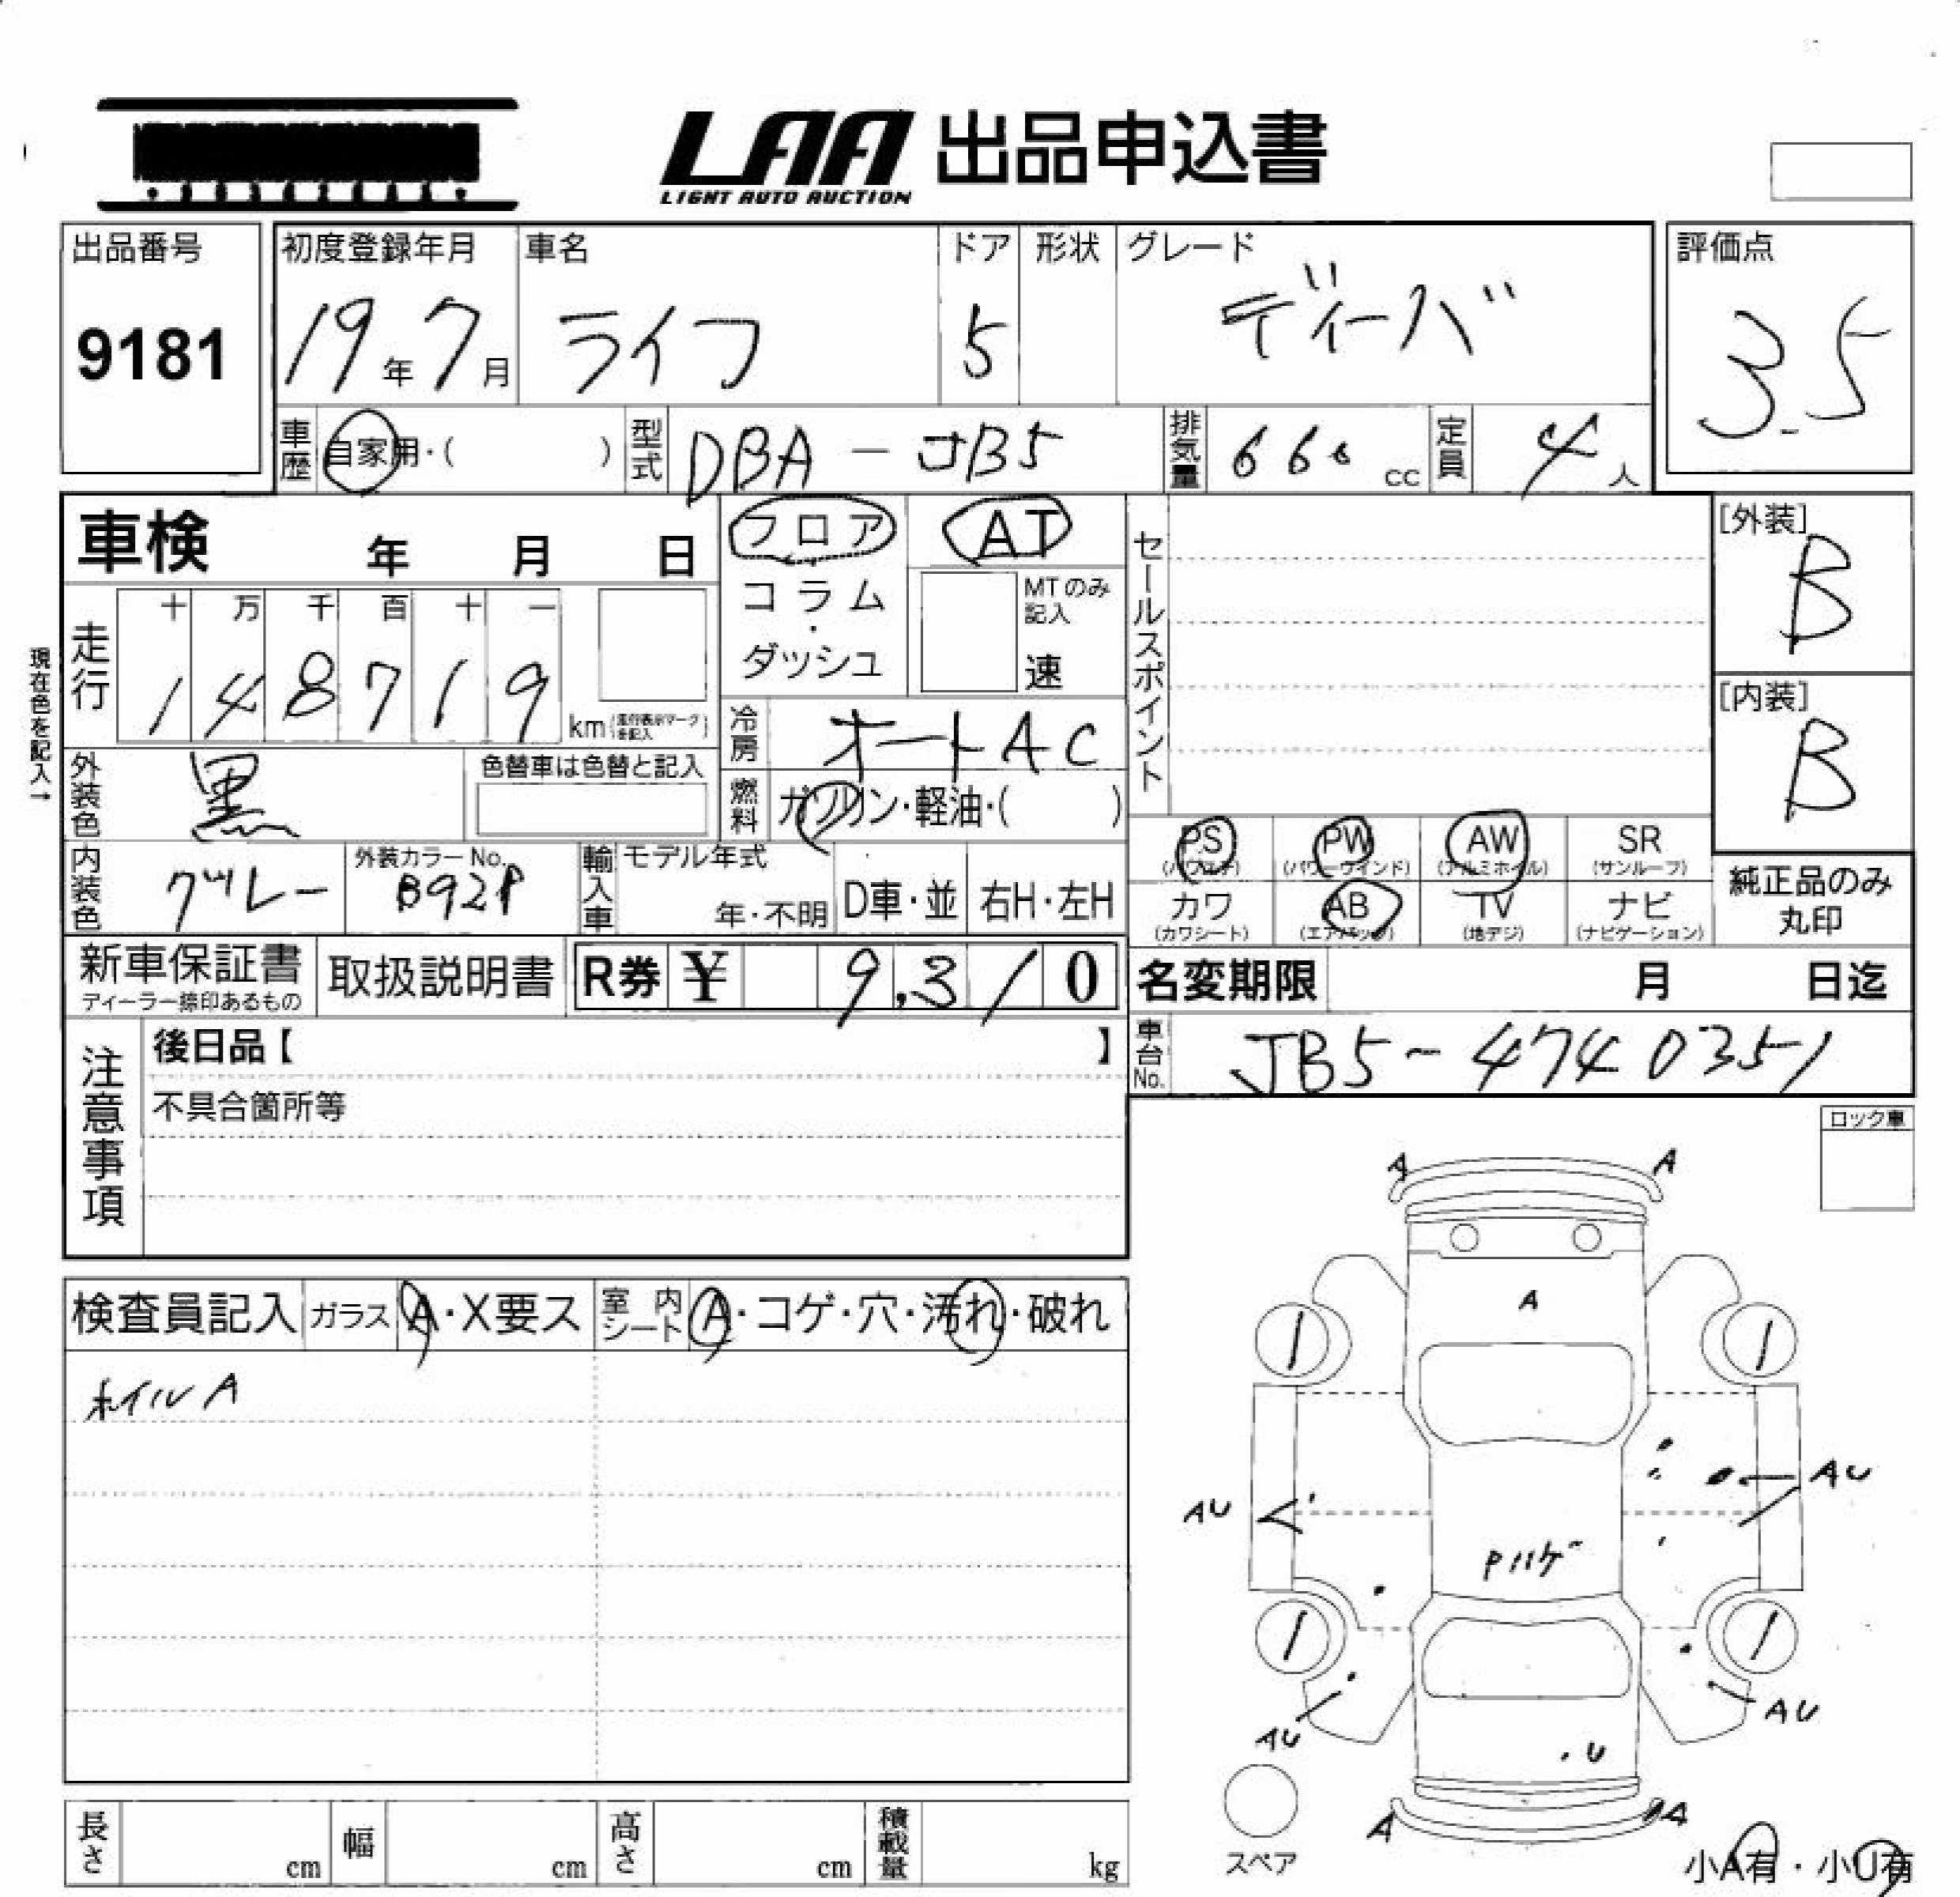 LAA 出品申込書
LIGHT AUTO AUCTION
出品番号
9181
初度登録年月
19年7月
車名
ライフ
ドア
5
形状
グレード
ディーバ
評価点
3.5
車歴
自家用・( )
型式
DBA-JB5
排気量
660 cc
定員
4人
車検 年 月 日
フロア
コラム
・
ダッシュ
AT
MTのみ
記入
速
セールスポイント
[外装]
B
[内装]
B
現在色を記入→
走行
十 万 千 百 十 一
1 4 8 7 1 9 km(走行表示マークを記入)
冷房
オートAC
外装色
黒
色替車は色替と記入
燃料
ガソリン・軽油・( )
内装色
グレー
外装カラーNo.
B92P
輸入車
モデル年式
年・不明
D車・並
右H・左H
PS
(パワステ)
PW
(パワーウインド)
AW
(アルミホイル)
SR
(サンルーフ)
カワ
(カワシート)
AB
(エアバッグ)
TV
(地デジ)
ナビ
(ナビゲーション)
純正品のみ
丸印
新車保証書
ディーラー捺印あるもの
取扱説明書
R券 ¥ 9,310
名変期限 月 日迄
車台No.
JB5-4740351
注意事項
後日品【 】
不具合箇所等
ロック車
検査員記入
ガラス
A・X要ス
室内シート
A・コゲ・穴・汚れ・破れ
ホイルA
A A
A
AU
AU
Pハゲ
AU
AU
U
A A
スペア
小A有・小U有
長さ cm
幅 cm
高さ cm
積載量 kg